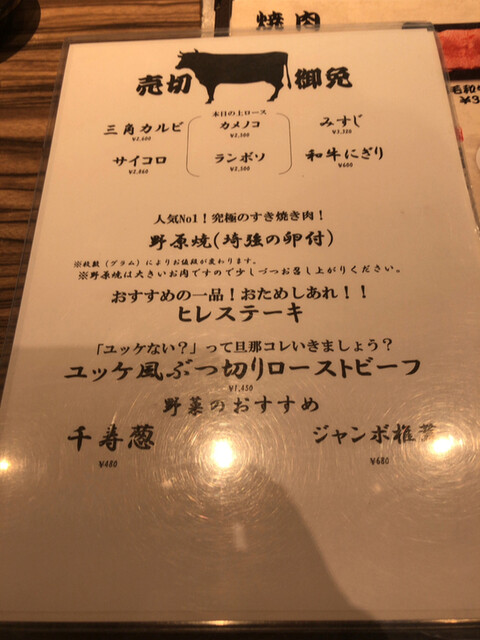 焼肉
売切 御免
本日の上ロース
三角カルビ カメノコ みすじ
¥2,600 ¥2,500 ¥3,380
サイコロ ランボソ 和牛にぎり
¥2,860 ¥2,500 ¥600
人気No1！究極のすき焼き肉！
野原焼(埼強の卵付)
※枚数（グラム）によりお値段が変わります。
※野原焼は大きいお肉ですので少しづつお召し上がりください。
おすすめの一品！おためしあれ！！
ヒレステーキ
「ユッケない？」って旦那コレいきましょう？
ユッケ風ぶつ切りローストビーフ
¥1,450
野菜のおすすめ
千寿葱 ジャンボ椎茸
¥480 ¥680